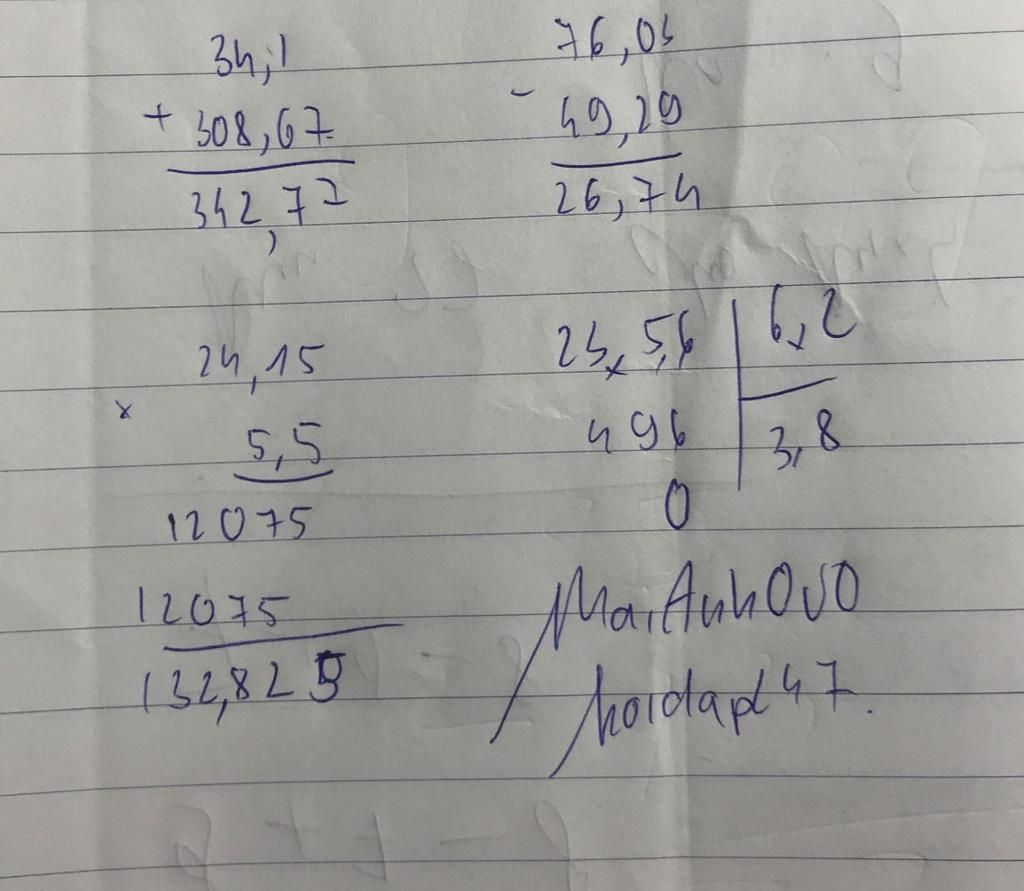 34,1
+ 308,67
342,77
76,03
- 49,29
26,74
24,15
x
5,5
12075
12075
132,825
23,5,6 6,2
496 3,8
0
MaiAnhOvO
hoidap247.